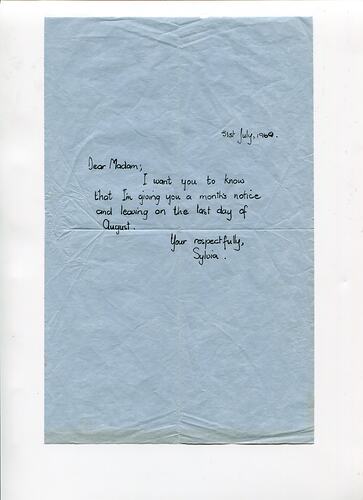 31st July, 1960.
Dear Madam;
I want you to know
that I'm giving you a months notice
and leaving on the last day of
August.
Your respectfully,
Sylvia.